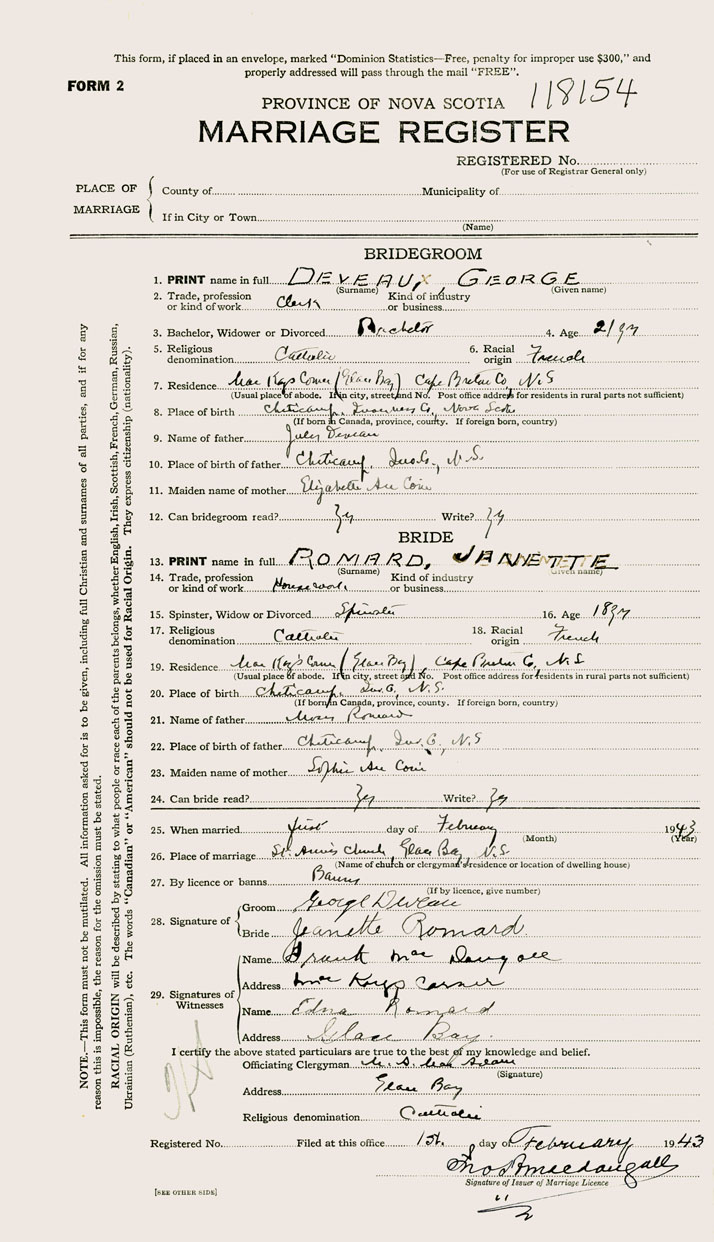 This form, if placed in an envelope, marked "Dominion Statistics—Free, penalty for improper use $300," and
properly addressed will pass through the mail "FREE".
FORM 2
PROVINCE OF NOVA SCOTIA 118154
MARRIAGE REGISTER
REGISTERED No.
(For use of Registrar General only)
PLACE OF MARRIAGE
County of Municipality of
If in City or Town
(Name)
BRIDEGROOM
1. PRINT name in full DEVEAUX, GEORGE
(Surname) (Given name)
2. Trade, profession or kind of work Clerk Kind of industry or business
3. Bachelor, Widower or Divorced Bachelor 4. Age 21 yr
5. Religious denomination Catholic 6. Racial origin French
7. Residence Mac Kays Corner (Glace Bay) Cape Breton Co, N.S
(Usual place of abode. If in city, street and No. Post office address for residents in rural parts not sufficient)
8. Place of birth Cheticamp, Inverness Co, Nova Scotia
(If born in Canada, province, county. If foreign born, country)
9. Name of father Jules Deveau
10. Place of birth of father Cheticamp, Inv. Co., N.S.
11. Maiden name of mother Elizabeth Au Coin
12. Can bridegroom read? Write?
BRIDE
13. PRINT name in full ROMARD, JANETTE
(Surname) (Given name)
14. Trade, profession or kind of work Housework Kind of industry or business
15. Spinster, Widow or Divorced Spinster 16. Age 18 yr
17. Religious denomination Catholic 18. Racial origin French
19. Residence Mac Kay's Corner (Glace Bay), Cape Breton Co, N.S
(Usual place of abode. If in city, street and No. Post office address for residents in rural parts not sufficient)
20. Place of birth Cheticamp, Inv. Co, N.S.
(If born in Canada, province, county. If foreign born, country)
21. Name of father Moses Romard
22. Place of birth of father Cheticamp, Inv. Co, N.S
23. Maiden name of mother Sophie Au Coin
24. Can bride read? Write?
25. When married first day of February 1943
(Month) (Year)
26. Place of marriage St. Ann's Church, Glace Bay, N.S.
(Name of church or clergyman's residence or location of dwelling house)
27. By licence or banns Banns
(If by licence, give number)
28. Signature of
Groom George Deveau
Bride Jeanette Romard
29. Signatures of Witnesses
Name Frank Mac Dougall
Address Mac Kays Corner
Name Edna Romard
Address Glace Bay.
I certify the above stated particulars are true to the best of my knowledge and belief.
Officiating Clergyman
(Signature)
Address Glace Bay
Religious denomination Catholic
Registered No. Filed at this office 1st. day of February 1943
Jno A Macdougall
Signature of Issuer of Marriage Licence
[SEE OTHER SIDE]
NOTE.—This form must not be mutilated. All information asked for is to be given, including full Christian and surnames of all parties, and if for any
reason this is impossible, the reason for the omission must be stated.
RACIAL ORIGIN will be described by stating to what people or race each of the parents belongs, whether English, Irish, Scottish, French, German, Russian,
Ukrainian (Ruthenian), etc. The words "Canadian" or "American" should not be used for Racial Origin. They express citizenship (nationality).